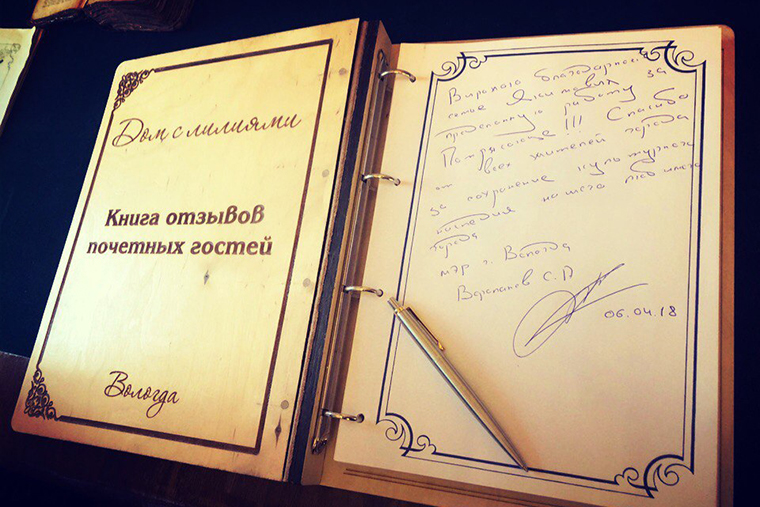 Дом с лилиями
Книга отзывов
почетных гостей
Вологда
Выражаю благодарность
семье Якимовых за
проделанную работу
Потрясающе!!! Спасибо
от всех жителей города
за сохранение культурного
наследия нашего любимого
города
мэр г. Вологда
Воропанов С.А
06.04.18